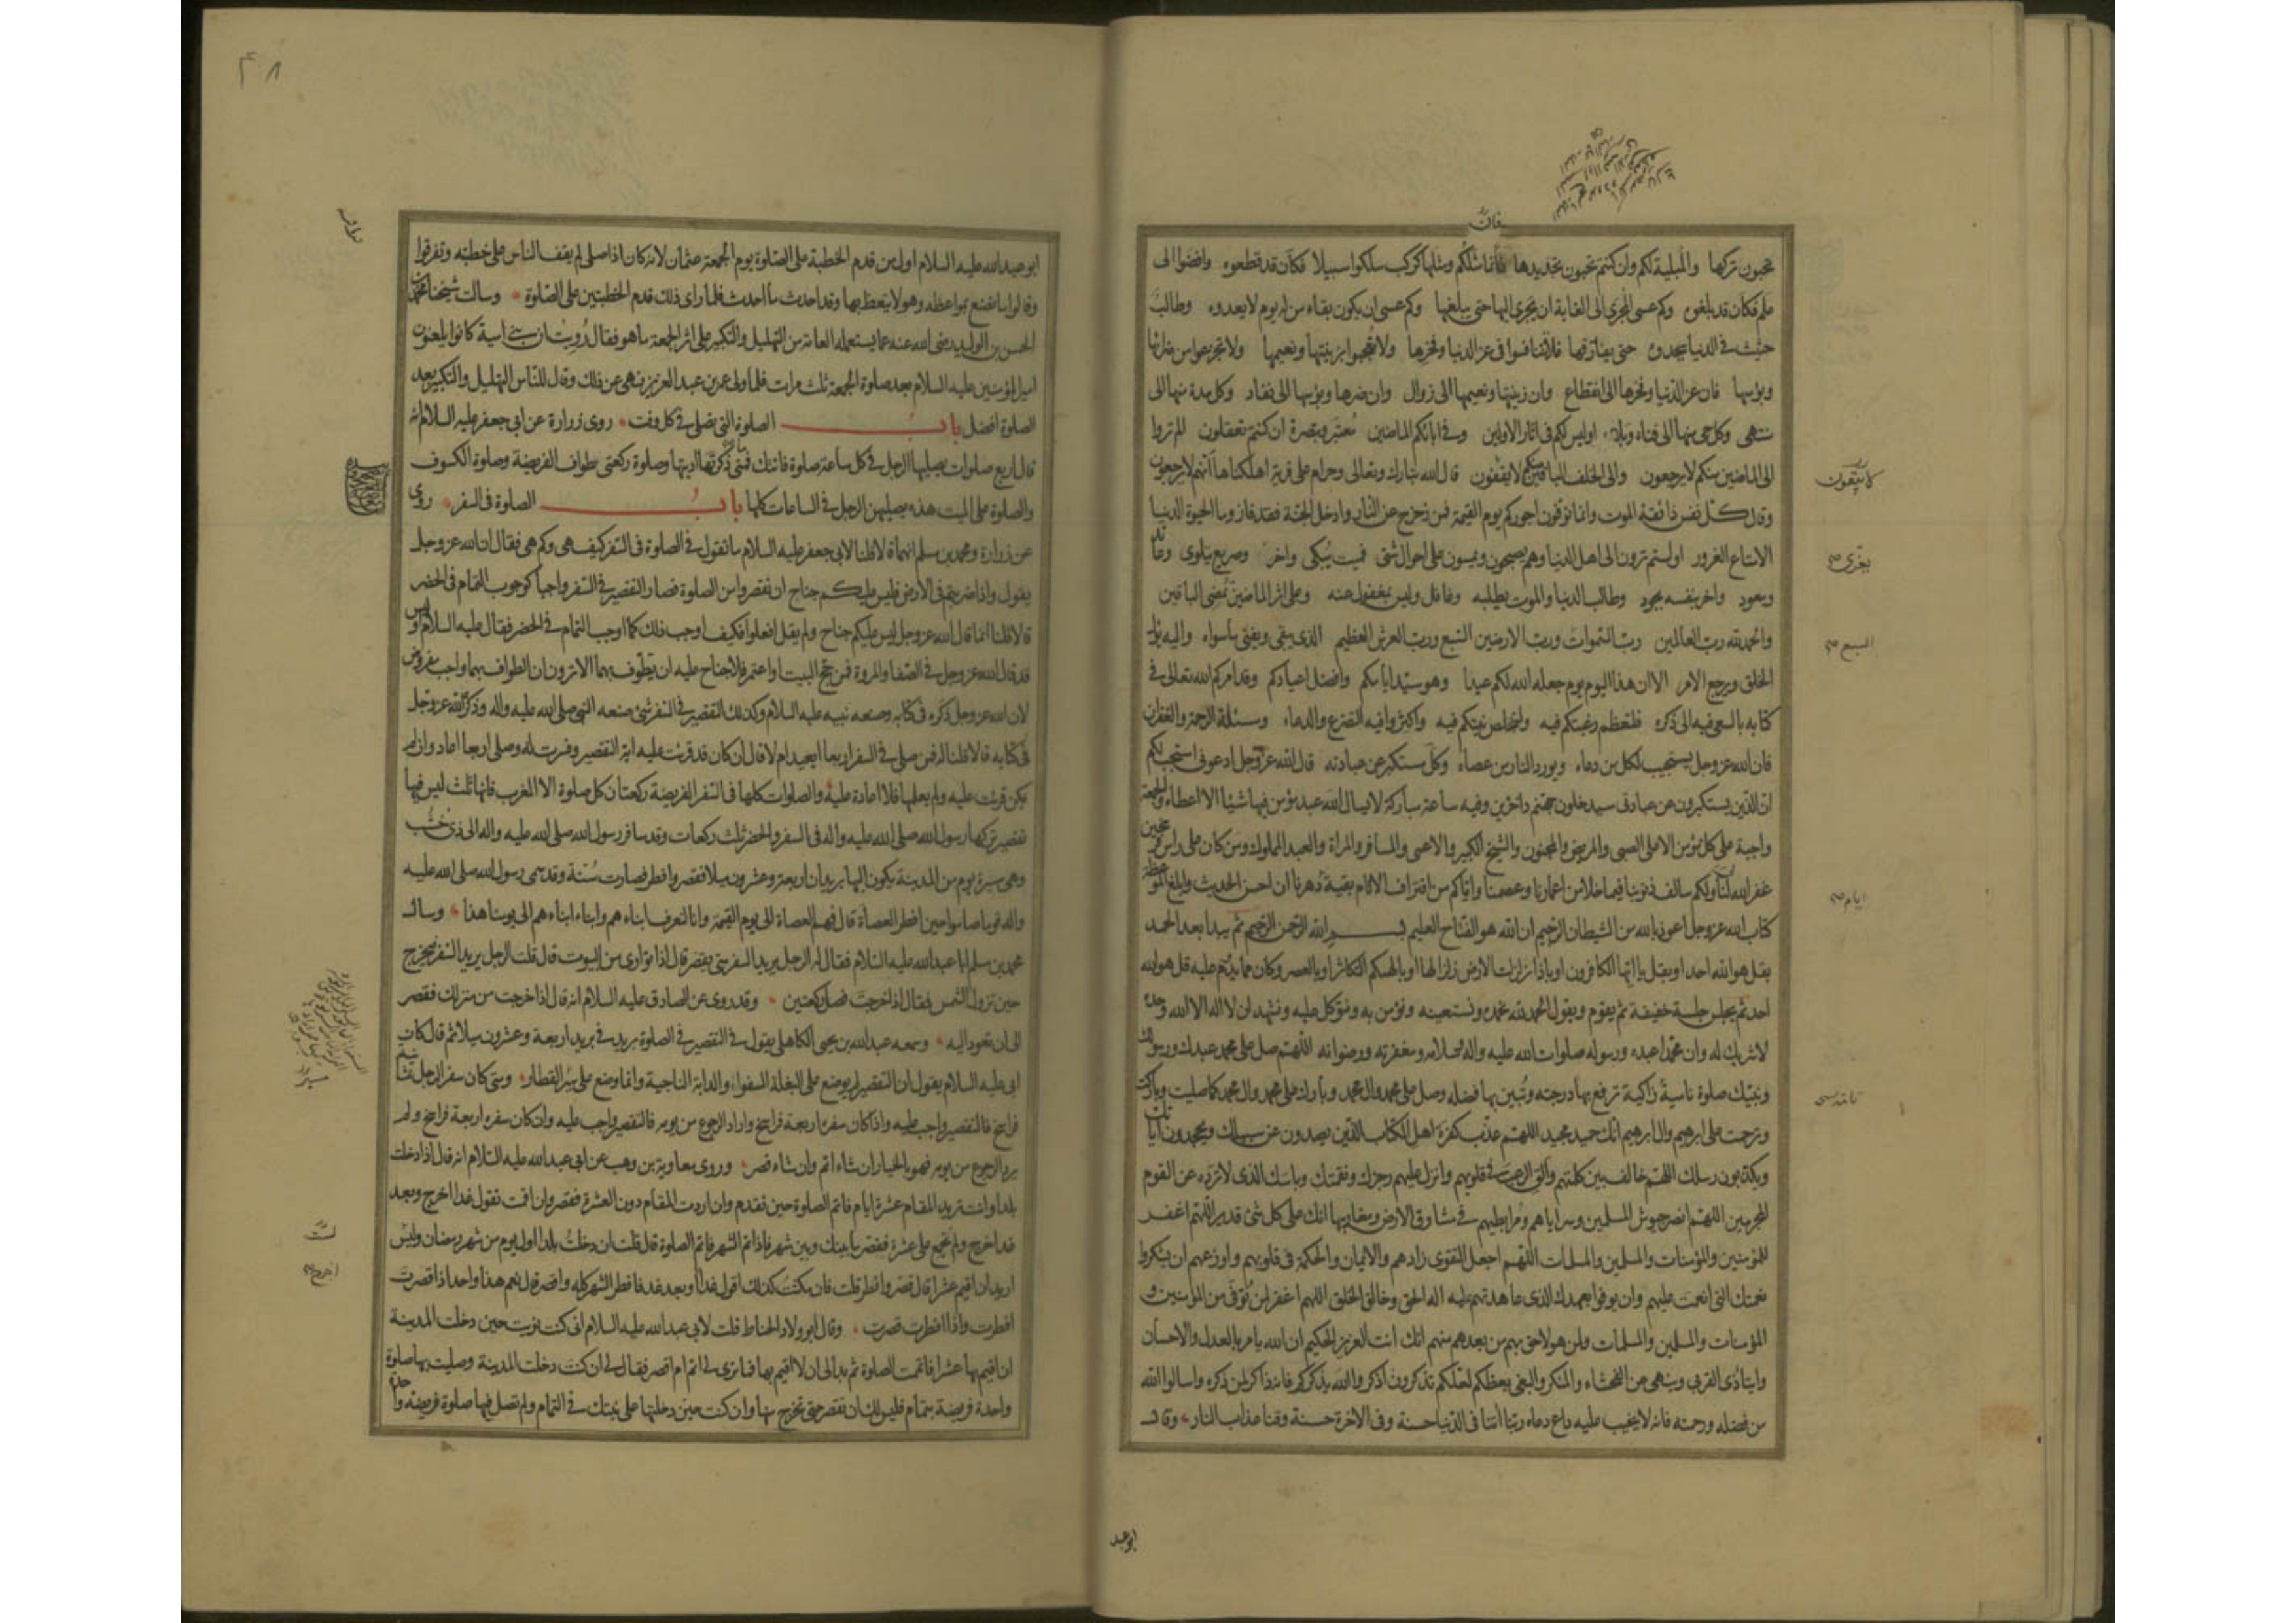 فان
تحبون تركها والمبلية لكم وان كنتم تحبون تجديدها فانما مثلكم ومثلها كركب سلكوا سبيلا فكان قد قطعوه وافضوا الى
علم فكان قد بلغوه وكم عسى المجرى الى الغاية ان يجرى اليها حتى يبلغها وكم عسى ان يكون بقاء من له يوم لا يعدوه وطالب
حثيث فى الدنيا يحدوه حتى يفارقها فلا تتنافسوا فى عز الدنيا وفخرها ولا تعجبوا بزينتها ونعيمها ولا تجزعوا من ضرائها
وبؤسها فان عز الدنيا وفخرها الى انقطاع وان زينتها ونعيمها الى زوال وان ضرها وبؤسها الى نفاد وكل مدة منها الى
منتهى وكل حى منها الى فناء وبلاء اوليس لكم فى اثار الاولين وفى ابائكم الماضين معتبر وتبصرة ان كنتم تعقلون الم تروا
الى الماضين منكم لا يرجعون والى الخلف الباقين منكم لا يقفون قال الله تبارك وتعالى وحرام على قرية اهلكناها انهم لا يرجعون
وقال كل نفس ذائقة الموت وانما توفون اجوركم يوم القيمة فمن زحزح عن النار وادخل الجنة فقد فاز وما الحيوة الدنيا
الا متاع الغرور اولستم ترون الى اهل الدنيا وهم يصبحون ويمسون على احوال شتى فميت يبكى واخر وصريع يتلوى وعائد
ويعود واخر بنفسه يجود وطالب الدنيا والموت يطلبه وغافل وليس بمغفول عنه وعلى اثر الماضين تمضى الباقين
والحمد لله رب العالمين رب السموات ورب الارضين السبع ورب العرش العظيم الذى يبقى ويفنى ما سواه واليه يؤل
الخلق ويرجع الامر الا ان هذا اليوم يوم جعله الله لكم عيدا وهو سيد ايامكم وافضل اعيادكم وقد امركم الله تعالى فى
كتابه بالسعى فيه الى ذكره فلتعظم رغبتكم فيه ولتخلص نيتكم فيه واكثروا فيه التضرع والدعاء ومسئلة الرحمة والغفران
فان الله عز وجل يستجيب لكل من دعاه ويورد النار من عصاه وكل مستكبر عن عبادته قال الله عز وجل ادعونى استجب لكم
ان الذين يستكبرون عن عبادتى سيدخلون جهنم داخرين وفيه ساعة مباركة لا يسال الله عبد مؤمن فيها شيئا الا اعطاه والجمعة
واجبة على كل مؤمن الا على الصبى والمريض والمجنون والشيخ الكبير والاعمى والمسافر والمراة والعبد المملوك ومن كان على راس فرسخين
غفر الله لنا ولكم سالف ذنوبنا فيما خلا من اعمارنا وعصمنا واياكم من اقتراف الاثام بقية دهرنا ان احسن الحديث وابلغ الموعظة
كتاب الله عز وجل اعوذ بالله من الشيطان الرجيم ان الله هو الفتاح العليم بسم الله الرحمن الرحيم ثم يبدا بعد الحمد
بقل هو الله احد او بقل يا ايها الكافرون او باذا زلزلت الارض زلزالها او بالهيكم التكاثر او بالعصر وكان مما يدوم عليه قل هو الله
احد ثم يجلس جلسة خفيفة ثم يقوم ويقول الحمد لله نحمده ونستعينه ونؤمن به ونتوكل عليه ونشهد ان لا اله الا الله وحده
لا شريك له وان محمدا عبده ورسوله صلوات الله عليه واله وسلامه ومغفرته ورضوانه اللهم صل على محمد عبدك ورسولك
ونبيك صلوة نامية زاكية ترفع بها درجته وتبين بها فضله وصل على محمد وال محمد وبارك على محمد وال محمد كما صليت وباركت
وترحمت على ابرهيم وال ابرهيم انك حميد مجيد اللهم عذب كفرة اهل الكتاب الذين يصدون عن سبيلك ويجحدون اياتك
ويكذبون رسلك اللهم خالف بين كلمتهم والق الرعب فى قلوبهم وانزل عليهم رجزك ونقمتك وباسك الذى لا ترده عن القوم
المجرمين اللهم انصر جيوش المسلمين وسراياهم ومرابطيهم فى مشارق الارض ومغاربها انك على كل شئ قدير اللهم اغفر
للمؤمنين والمؤمنات والمسلمين والمسلمات اللهم اجعل التقوى زادهم والايمان والحكمة فى قلوبهم واوزعهم ان يشكروا
نعمتك التى انعمت عليهم وان يوفوا بعهدك الذى عاهدتهم عليه اله الحق وخالق الخلق اللهم اغفر لمن توفى من المؤمنين و
المؤمنات والمسلمين والمسلمات ولمن هو لاحق بهم من بعدهم منهم انك انت العزيز الحكيم ان الله يامر بالعدل والاحسان
وايتاء ذى القربى وينهى عن الفحشاء والمنكر والبغى يعظكم لعلكم تذكرون اذكروا الله يذكركم فانه ذاكر لمن ذكره واسالوا الله
من فضله ورحمته فانه لا يخيب عليه داع دعاه ربنا اتنا فى الدنيا حسنة وفى الاخرة حسنة وقنا عذاب النار وقال
ابو عبد
٤٨
ابو عبد الله عليه السلام اول من قدم الخطبة على الصلوة يوم الجمعة عثمان لانه كان اذا صلى لم يقف الناس على خطبته وتفرقوا
وقالوا ما نصنع بمواعظه وهو لا يتعظ بها وقد احدث ما احدث فلما راى ذلك قدم الخطبتين على الصلوة وسالت شيخنا محمد بن
الحسن بن الوليد رضى الله عنه عما يستعمله العامة من التهليل والتكبير على اثر الجمعة ما هو فقال رويت ان بنى امية كانوا يلعنون
امير المؤمنين عليه السلام بعد صلوة الجمعة ثلث مرات فلما ولى عمر بن عبد العزيز نهى عن ذلك وقال للناس التهليل والتكبير بعد
الصلوة افضل باب الصلوة التى تصلى فى كل وقت روى زرارة عن ابى جعفر عليه السلام انه
قال اربع صلوات يصليها الرجل فى كل ساعة صلوة فاتتك فمتى ما ذكرتها اديتها وصلوة ركعتى طواف الفريضة وصلوة الكسوف
والصلوة على الميت هذه يصليهن الرجل فى الساعات كلها باب الصلوة فى السفر روى
عن زرارة ومحمد بن مسلم انهما قالا قلنا لابى جعفر عليه السلام ما تقول فى الصلوة فى السفر كيف هى وكم هى فقال ان الله عز وجل
يقول واذا ضربتم فى الارض فليس عليكم جناح ان تقصروا من الصلوة فصار التقصير فى السفر واجبا كوجوب التمام فى الحضر
قالا قلنا انما قال الله عز وجل ليس عليكم جناح ولم يقل افعلوا فكيف اوجب ذلك كما اوجب التمام فى الحضر فقال عليه السلام اوليس
قد قال الله عز وجل فى الصفا والمروة فمن حج البيت او اعتمر فلا جناح عليه ان يطوف بهما الا ترون ان الطواف بهما واجب مفروض
لان الله عز وجل ذكره فى كتابه وصنعه نبيه عليه السلام وكذلك التقصير فى السفر شئ صنعه النبى صلى الله عليه واله وذكره الله عز وجل
فى كتابه قالا قلنا له فمن صلى فى السفر اربعا ايعيد ام لا قال ان كان قد قرئت عليه اية التقصير وفسرت له وصلى اربعا اعاد وان لم
يكن قرئت عليه ولم يعلمها فلا اعادة عليه والصلوات كلها فى السفر الفريضة ركعتان كل صلوة الا المغرب فانها ثلث ليس فيها
تقصير تركها رسول الله صلى الله عليه واله فى السفر والحضر ثلث ركعات وقد سافر رسول الله صلى الله عليه واله الى ذى خشب
وهى مسيرة يوم من المدينة يكون اليها بريدان اربعة وعشرون ميلا فقصر وافطر فصارت سنة وقد سمى رسول الله صلى الله عليه
واله قوما صاموا حين افطر العصاة قال فهم العصاة الى يوم القيمة وانا لنعرف ابناءهم وابناء ابناءهم الى يومنا هذا وسال
محمد بن مسلم ابا عبد الله عليه السلام فقال له الرجل يريد السفر متى يقصر قال اذا توارى من البيوت قال قلت الرجل يريد السفر فيخرج
حين تزول الشمس فقال اذا خرجت فصل ركعتين وقد روى عن الصادق عليه السلام انه قال اذا خرجت من منزلك فقصر
الى ان تعود اليه وسمعه عبد الله بن يحيى الكاهلى يقول فى التقصير فى الصلوة بريد فى بريد اربعة وعشرون ميلا ثم قال كان
ابى عليه السلام يقول ان التقصير لم يوضع على البغلة السفواء والدابة الناجية وانما وضع على سير القطار ومتى كان سفر الرجل ثمانية
فراسخ فالتقصير واجب عليه واذا كان سفره اربعة فراسخ واراد الرجوع من يومه فالتقصير واجب عليه وان كان سفره اربعة فراسخ ولم
يرد الرجوع من يومه فهو بالخيار ان شاء اتم وان شاء قصر وروى معاوية بن وهب عن ابى عبد الله عليه السلام انه قال اذا دخلت
بلدا وانت تريد المقام عشرة ايام فاتم الصلوة حين تقدم وان اردت المقام دون العشرة فقصر وان اقمت تقول غدا اخرج وبعد
غد اخرج ولم تجمع على عشرة فقصر ما بينك وبين شهر فاذا تم الشهر فاتم الصلوة قال قلت ان دخلت بلدا اول يوم من شهر رمضان وليس
اريد ان اقيم عشرا قال قصر وافطر قلت فان مكثت كذلك اقول غدا او بعد غد فافطر الشهر كله واقصر قال نعم هذا واحد اذا قصرت
افطرت واذا افطرت قصرت وقال ابو ولاد الحناط قلت لابى عبد الله عليه السلام انى كنت نويت حين دخلت المدينة
ان اقيم بها عشرا فاتممت الصلوة ثم بدا لى ان لا اقيم بها فما ترى لى اتم ام اقصر فقال لى ان كنت دخلت المدينة وصليت بها صلوة
واحدة فريضة بتمام فليس لك ان تقصر حتى تخرج منها وان كنت حين دخلتها على نيتك فى التمام ولم تصل فيها صلوة فريضة واحدة